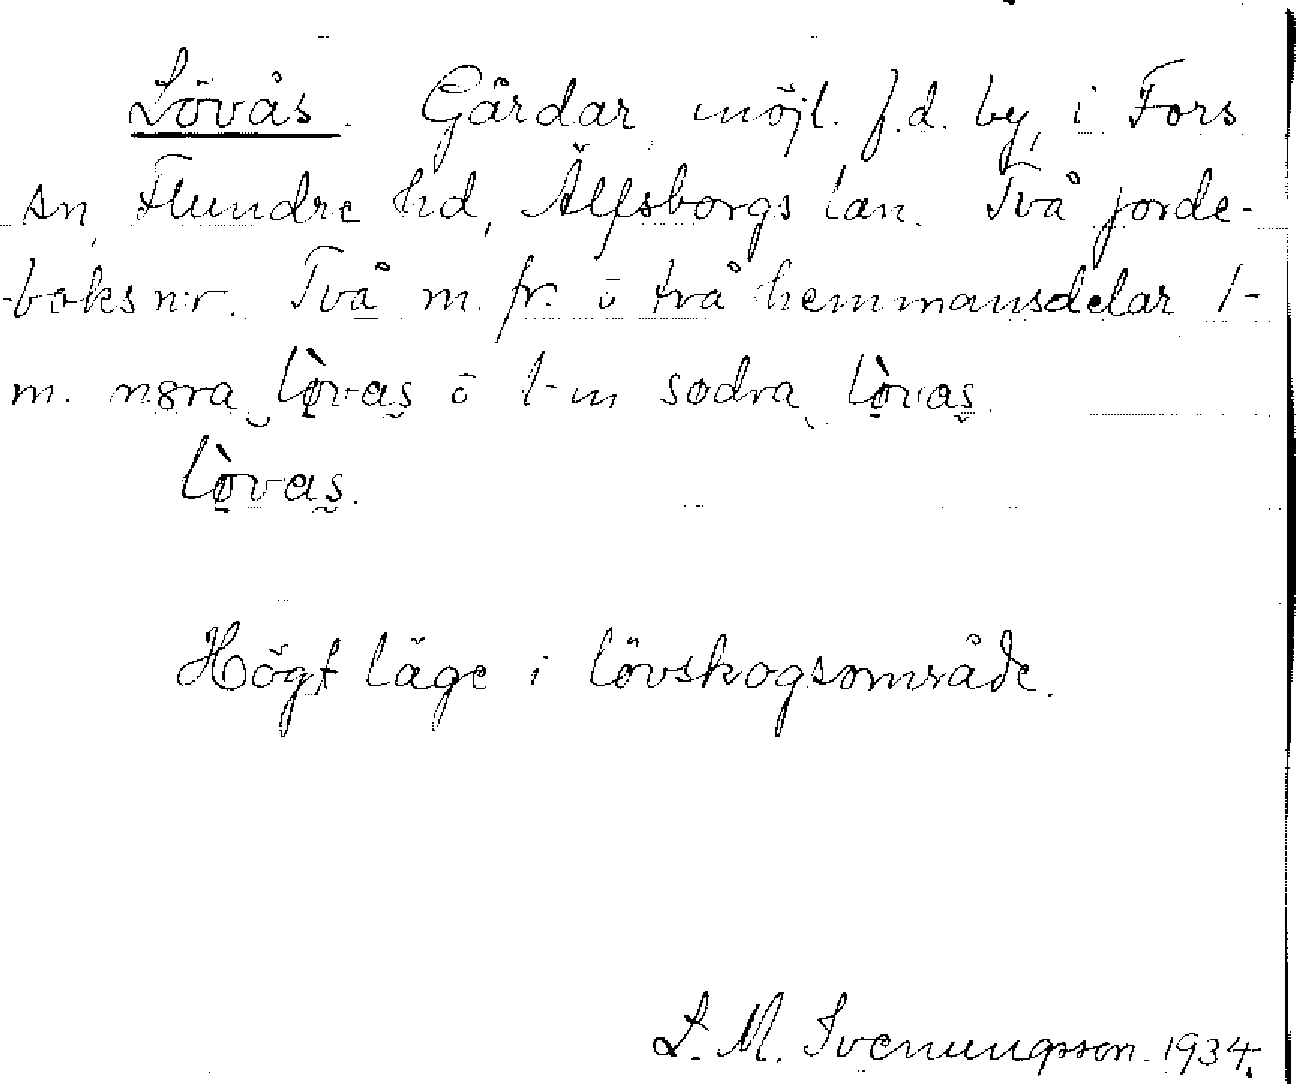 Lövås. Gårdar, möjl. f.d. by, i Fors
sn, Flundre hd, Älfsborgs län. Två jorde-
boksn:r. Två m. fr. ö två hemmansdelar 1-
m. nöra lòvas ö 1-m södra lòvas.
lòvas.
Högt läge i lövskogsområde.
L. M. Svenungsson. 1934.